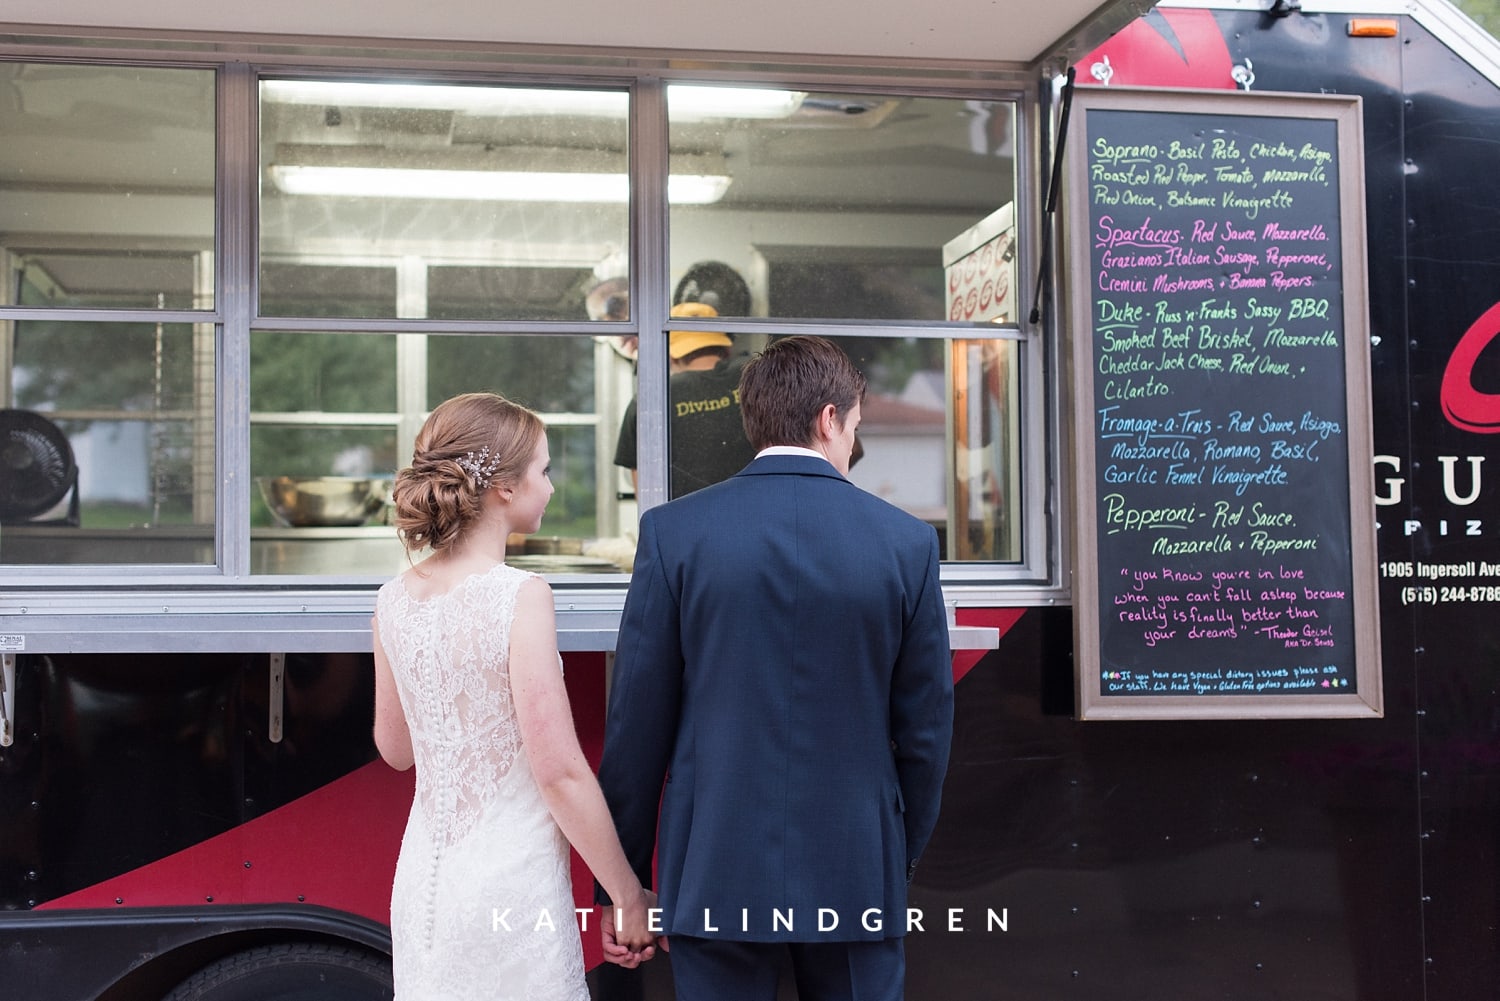 Soprano - Basil Pesto, Chicken, Asiago,
Roasted Red Pepper, Tomato, Mozzarella,
Red Onion, Balsamic Vinaigrette
Spartacus - Red Sauce, Mozzarella,
Graziano's Italian Sausage, Pepperoni,
Cremini Mushrooms, + Banana Peppers.
Duke - Russ 'n' Franks Sassy BBQ
Smoked Beef Brisket, Mozzarella
Cheddar Jack Cheese, Red Onion, +
Cilantro.
Fromage-a-Trois - Red Sauce, Asiago,
Mozzarella, Romano, Basil,
Garlic Fennel Vinaigrette.
Pepperoni - Red Sauce.
Mozzarella + Pepperoni
"you know you're in love
when you can't fall asleep because
reality is finally better than
your dreams" - Theodor Geisel
AKA Dr. Seuss
**If you have any special dietary issues please ask
our staff. We have Vegan + Gluten Free options available ***
Divine
GU
PIZ
1905 Ingersoll Ave
(515) 244-8786
KATIE LINDGREN